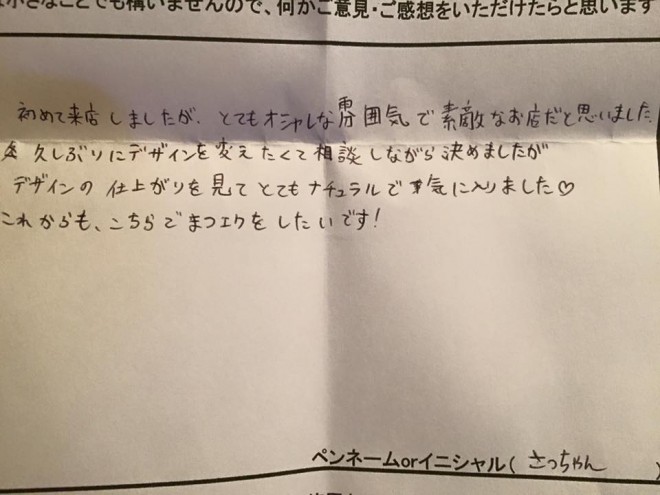 小さなことでも構いませんので、何かご意見・ご感想をいただけたらと思います
初めて来店しましたが、とてもオシャレな雰囲気で素敵なお店だと思いました。
久しぶりにデザインを変えたくて相談しながら決めましたが
デザインの仕上がりを見てとてもナチュラルで気に入りました♡
これからも、こちらでまつエクをしたいです!
ペンネームorイニシャル( さっちゃん )